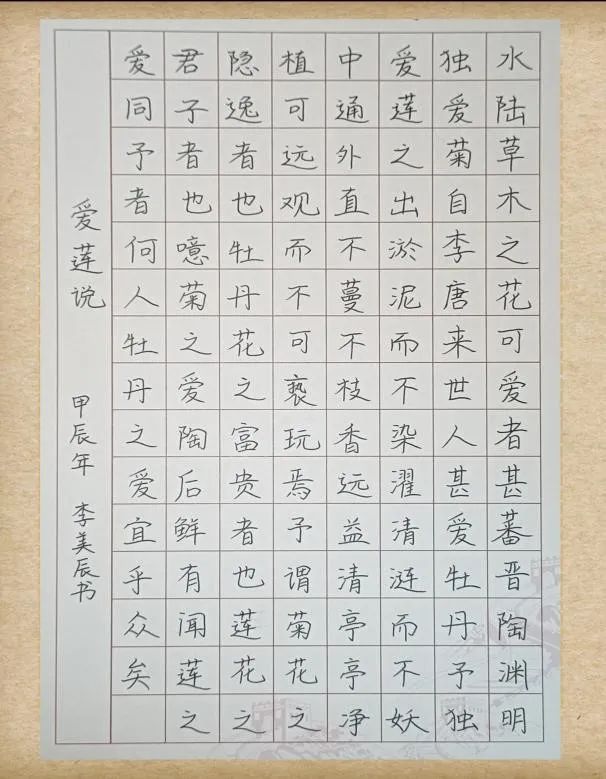 水陆草木之花可爱者甚蕃晋陶渊明
独爱菊自李唐来世人甚爱牡丹予独
爱莲之出淤泥而不染濯清涟而不妖
中通外直不蔓不枝香远益清亭亭净
植可远观而不可亵玩焉予谓菊花之
隐逸者也牡丹花之富贵者也莲花之
君子者也噫菊之爱陶后鲜有闻莲之
爱同予者何人牡丹之爱宜乎众矣
爱莲说 甲辰年 李美辰书